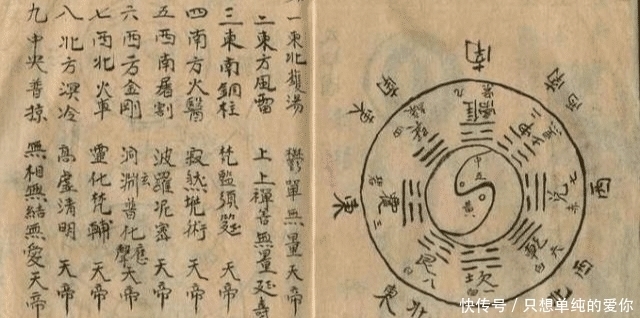 一東北鑊湯 鬱單無量天帝
二東方風雷 上上禪善無量延壽
三東南銅柱 梵監須延 天帝
四南方火翳 寂然兜術 天帝
五西南屠割 波羅尼密 天帝
六西方金剛 洞玄淵普化應聲 天帝
七西北火車 靈化梵輔 天帝
八北方溟冷 高虛清明 天帝
九中央普掠 無相無結無愛天帝
南
西南
西
西北
東北
東
東南
離九
坤二
兌七赤
乾六白
坎一
艮八白
震三碧
巽四
中五黃
快传号／只想单纯的爱你